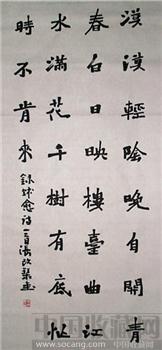 漠漠輕陰晚自開青
春白日映樓臺曲江
水滿花千樹有底忙
時不肯來
錄韓愈詩一首張改琴書
中国收藏网
www.socang.com